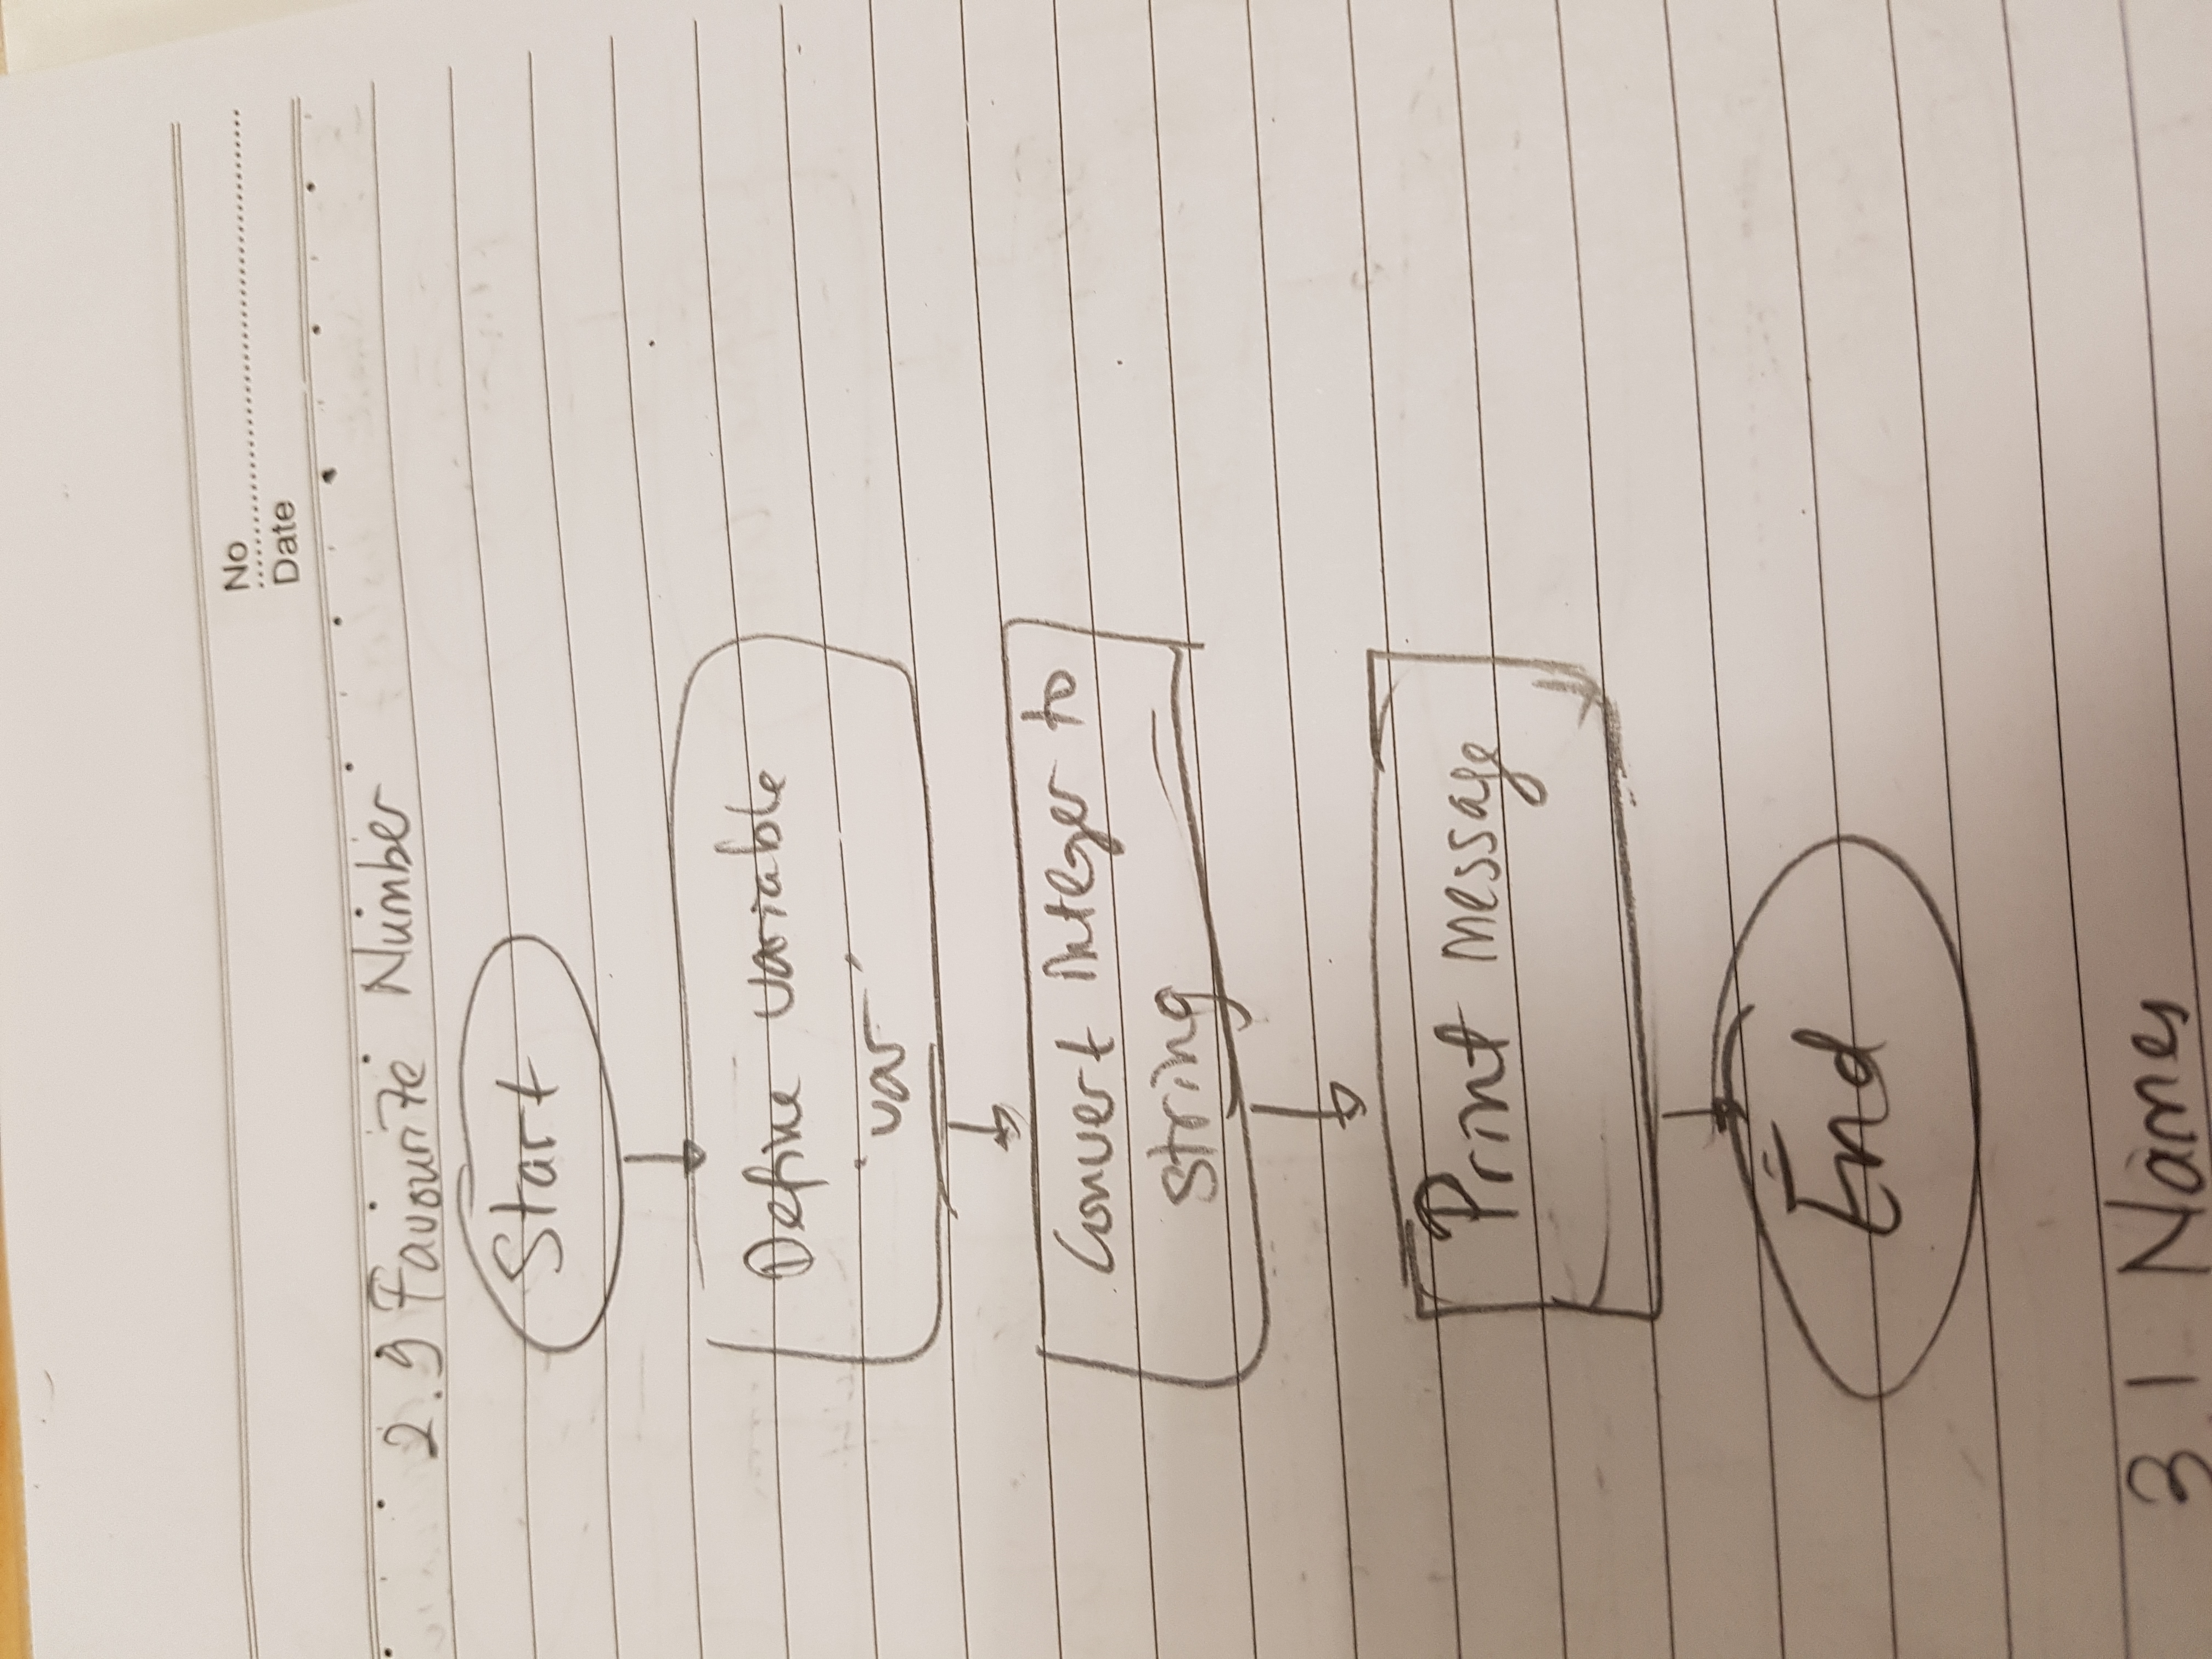 No
Date
2.9 Favourite Number
Start
Define variable
'var'
Convert integer to
string
Print message
End
3.1 Names